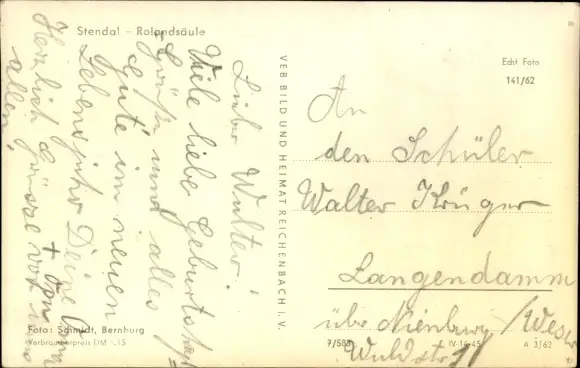 Stendal - Rolandsäule
Lieber Walter!
Viele liebe Geburtstags=
grüße und alles
Gute im neuen
Lebensjahr Deine Oma
+ Opa
Herzlich Grüsse von uns
allen,
VEB BILD UND HEIMAT REICHENBACH I. V.
Echt Foto
141/62
An
den Schüler
Walter Krüger
Langendamm
über Nienburg/Weser
Waldstr
Foto: Schmidt, Bernburg
Verbraucherpreis DM -,15
IV-14-45
A 3/62